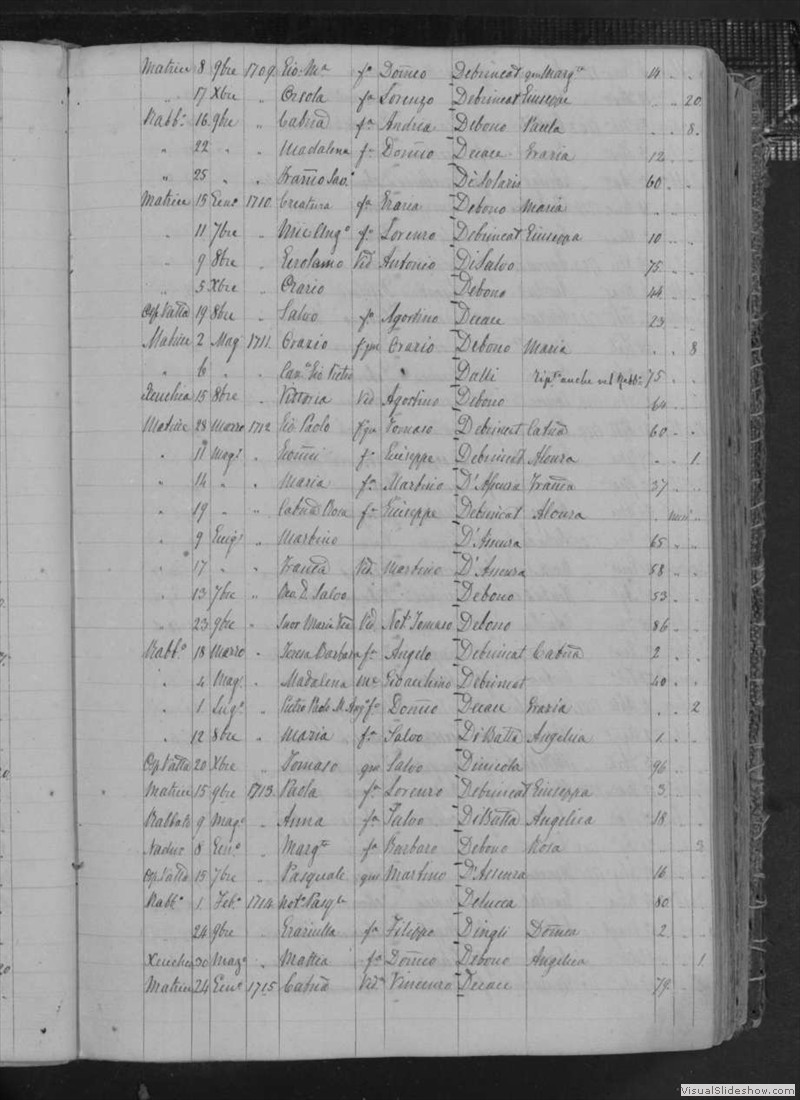 Matrice 8 9bre 1709. Gio: Ma fo Domco Debrincat qm Margta 14 . .
" 17 Xbre " Orsola fa Lorenzo Debrincat Giuseppe . . 20
Rabbo 16. 9bre " Catna fa Andrea Debono Paula . . 8.
" 22 " " Madalena fa Domco Decace Grazia 12 . .
" 25 " " DeSolaris 60 . .
Matrice 15 Geno 1710. Creatura fa Debono Maria . .
" 11 7bre " fo Lorenzo Debrincat Giuseppa 10 . .
" 9 8bre " Gerolamo Vid Antonio DiSalvo 75 . .
" 5 Xbre " Orazio Debono 44 . .
19 8bre " Salvo fo Agostino Decace 23 . .
Matrice 2 Mag 1711. Orazio f qm Orazio Debono Maria . . 8
" 6 " " Gio Pietro Dalli anche nel Rabbo 75 . .
Xeuchia 15 8bre " Vittoria Vid Agostino Debono 64 . .
Matrice 28 Marzo 1712 Gio Paolo f qm Tomaso Debrincat Catna 60 . .
" 11 Mago " fo Giuseppe Debrincat Aloisa . . 1.
" 14 " " Maria fa Martino D'Assura Franca 37 . .
" 19 " " Catna Rosa fa Giuseppe Debrincat Aloisa . mesi ..
" 9 Giugo " Martino D'Ansura 65 . .
" 17 " " Franca Vid. Martino D'Ansura 58 . .
" 13 7bre " Salvo Debono 53 . .
" 23 9bre " Suor Maria Vid Noto Tomaso Debono 86 . .
Rabbo 18 Marzo " Teresa Barbara fa Angelo Debrincat Catna 2 . .
" 4 Mago " Madalena ux Gioacchino Debrincat 40 . .
" 1 Lugo " Pietro Paolo M. Ango fo Domco Decace Grazia . . 2
" 12 8bre " Maria fa Salvo DiBatta Angelica 1 . .
20 Xbre " Tomaso qm Salvo Dinicola 96 . .
Matrice 15 9bre 1713. Paola fa Lorenzo Debrincat Giuseppa 3 . .
Rabbato 9 Mago " Anna fa Salvo DiBatta Angelica 18 . .
Nadur 8 Geno " Margta fa Barbaro Debono Rosa . . 3
15 7bre " Pasquale qm Martino D'Assenza 16 . .
Rabbo 1 Febo 1714. Noto Pasqle Delucca 80 . .
24 9bre " Graziulla fa Filippo Dingli Domca 2 . .
Xeuchia 30 Mago " Mattea fa Domco Debono Angelica . . 1
Matrice 24 Geno 1715 Catna Vida Vincenzo Decace 79 . .
VisualSlideshow.com